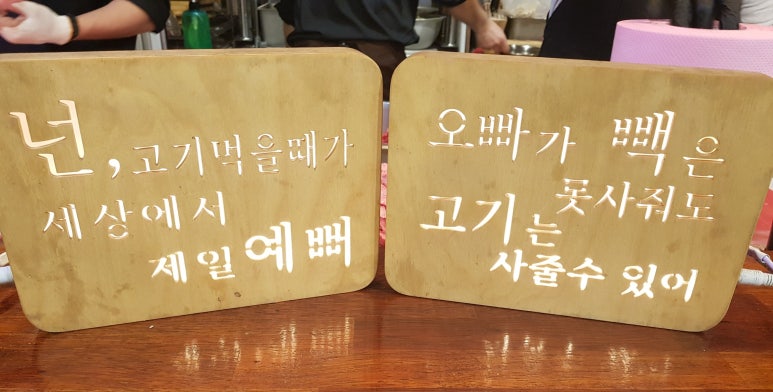 넌, 고기먹을때가
세상에서
제일 예뻐
오빠가 빽은
못사줘도
고기는
사줄수 있어